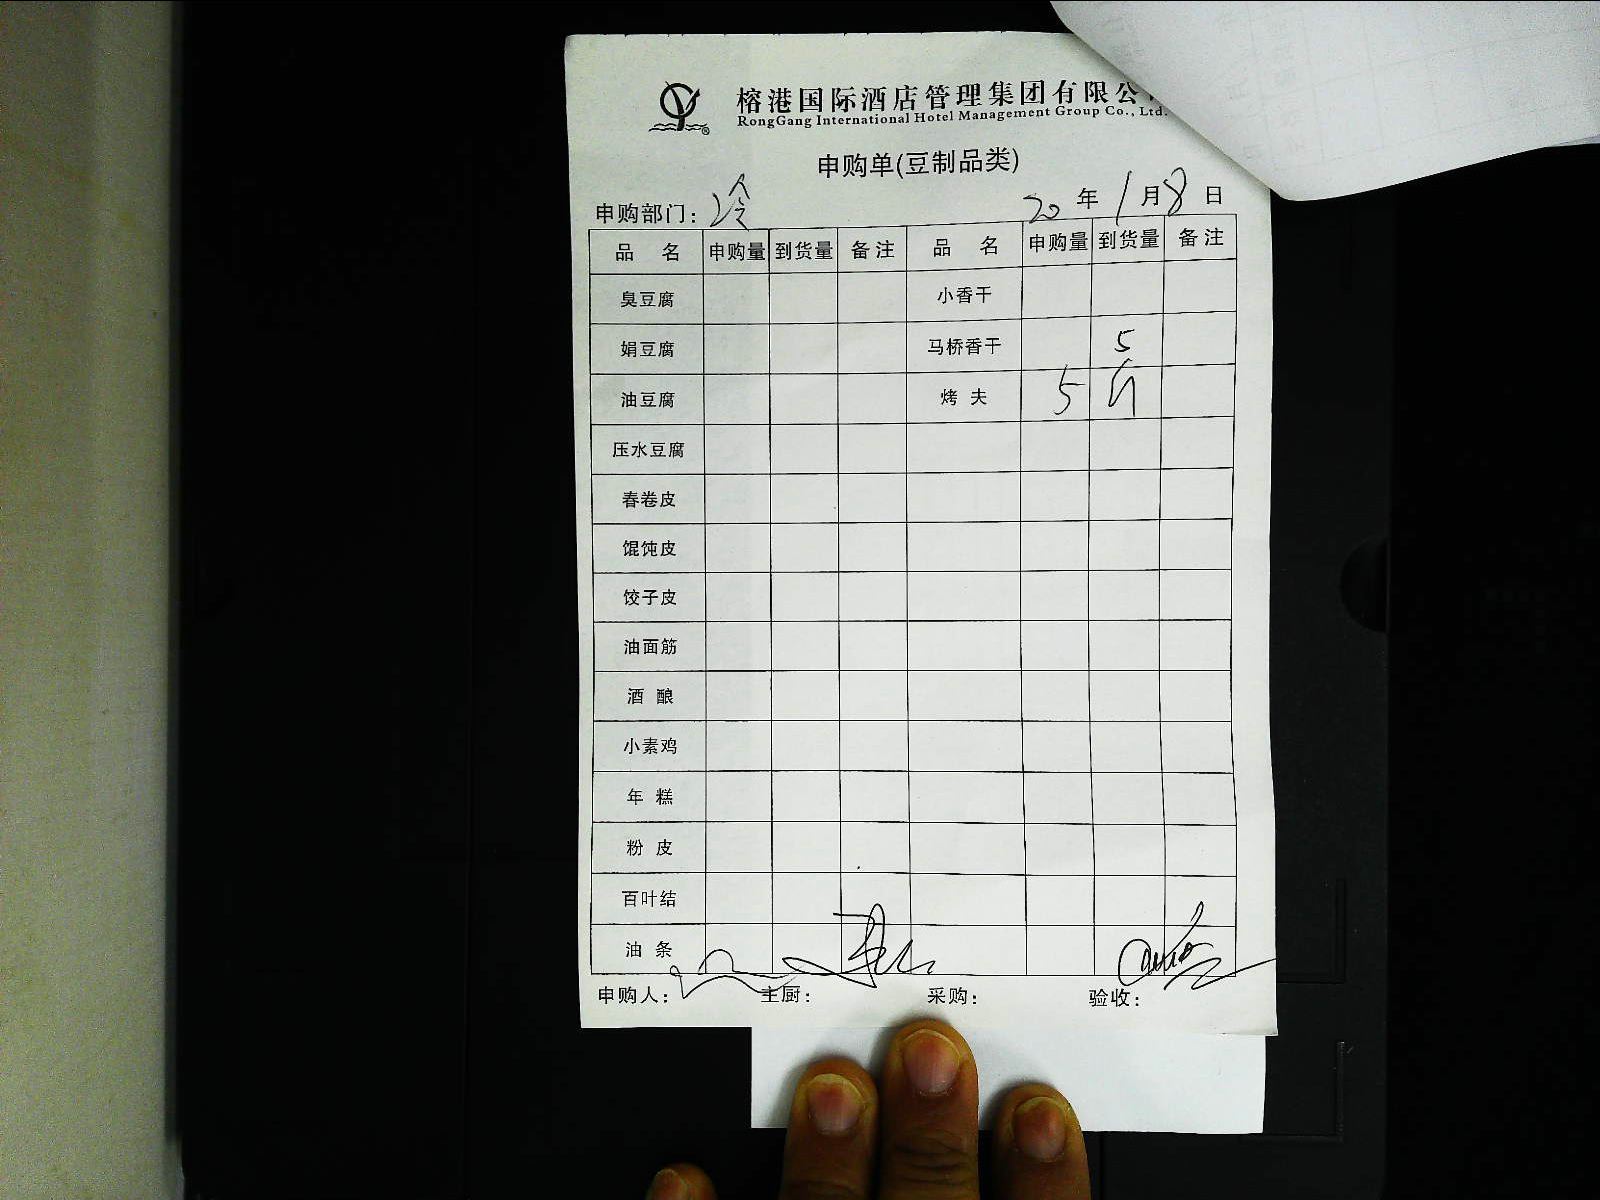 榕港国际酒店管理集团有限公
RongGang International Hotel Management Group Co., Ltd.
申购单(豆制品类)
申购部门: 冷 20 年 1 月 8 日
品 名 申购量 到货量 备注 品 名 申购量 到货量 备注
臭豆腐 小香干
娟豆腐 马桥香干 5
油豆腐 烤 夫 5
压水豆腐
春卷皮
馄饨皮
饺子皮
油面筋
酒 酿
小素鸡
年 糕
粉 皮
百叶结
油 条
申购人: 主厨: 采购: 验收: